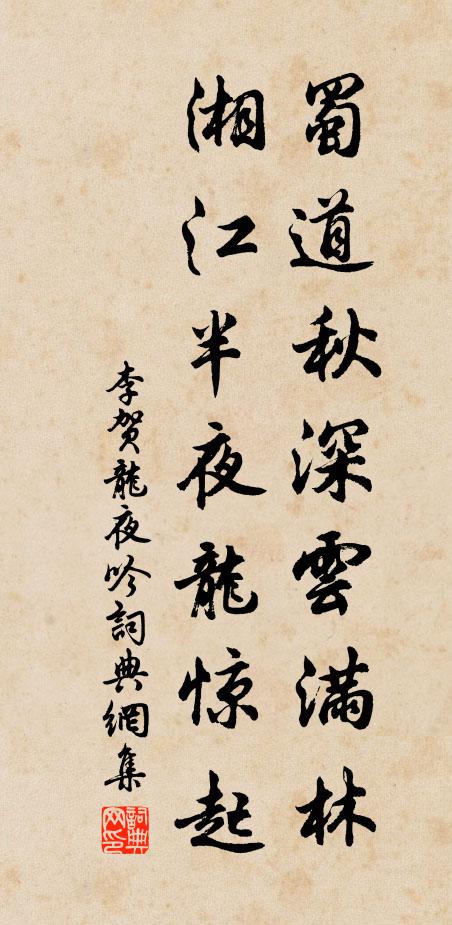 蜀道秋深雲满林
湘江半夜龍惊起
李贺龍夜吟詞典網集
詞典网印